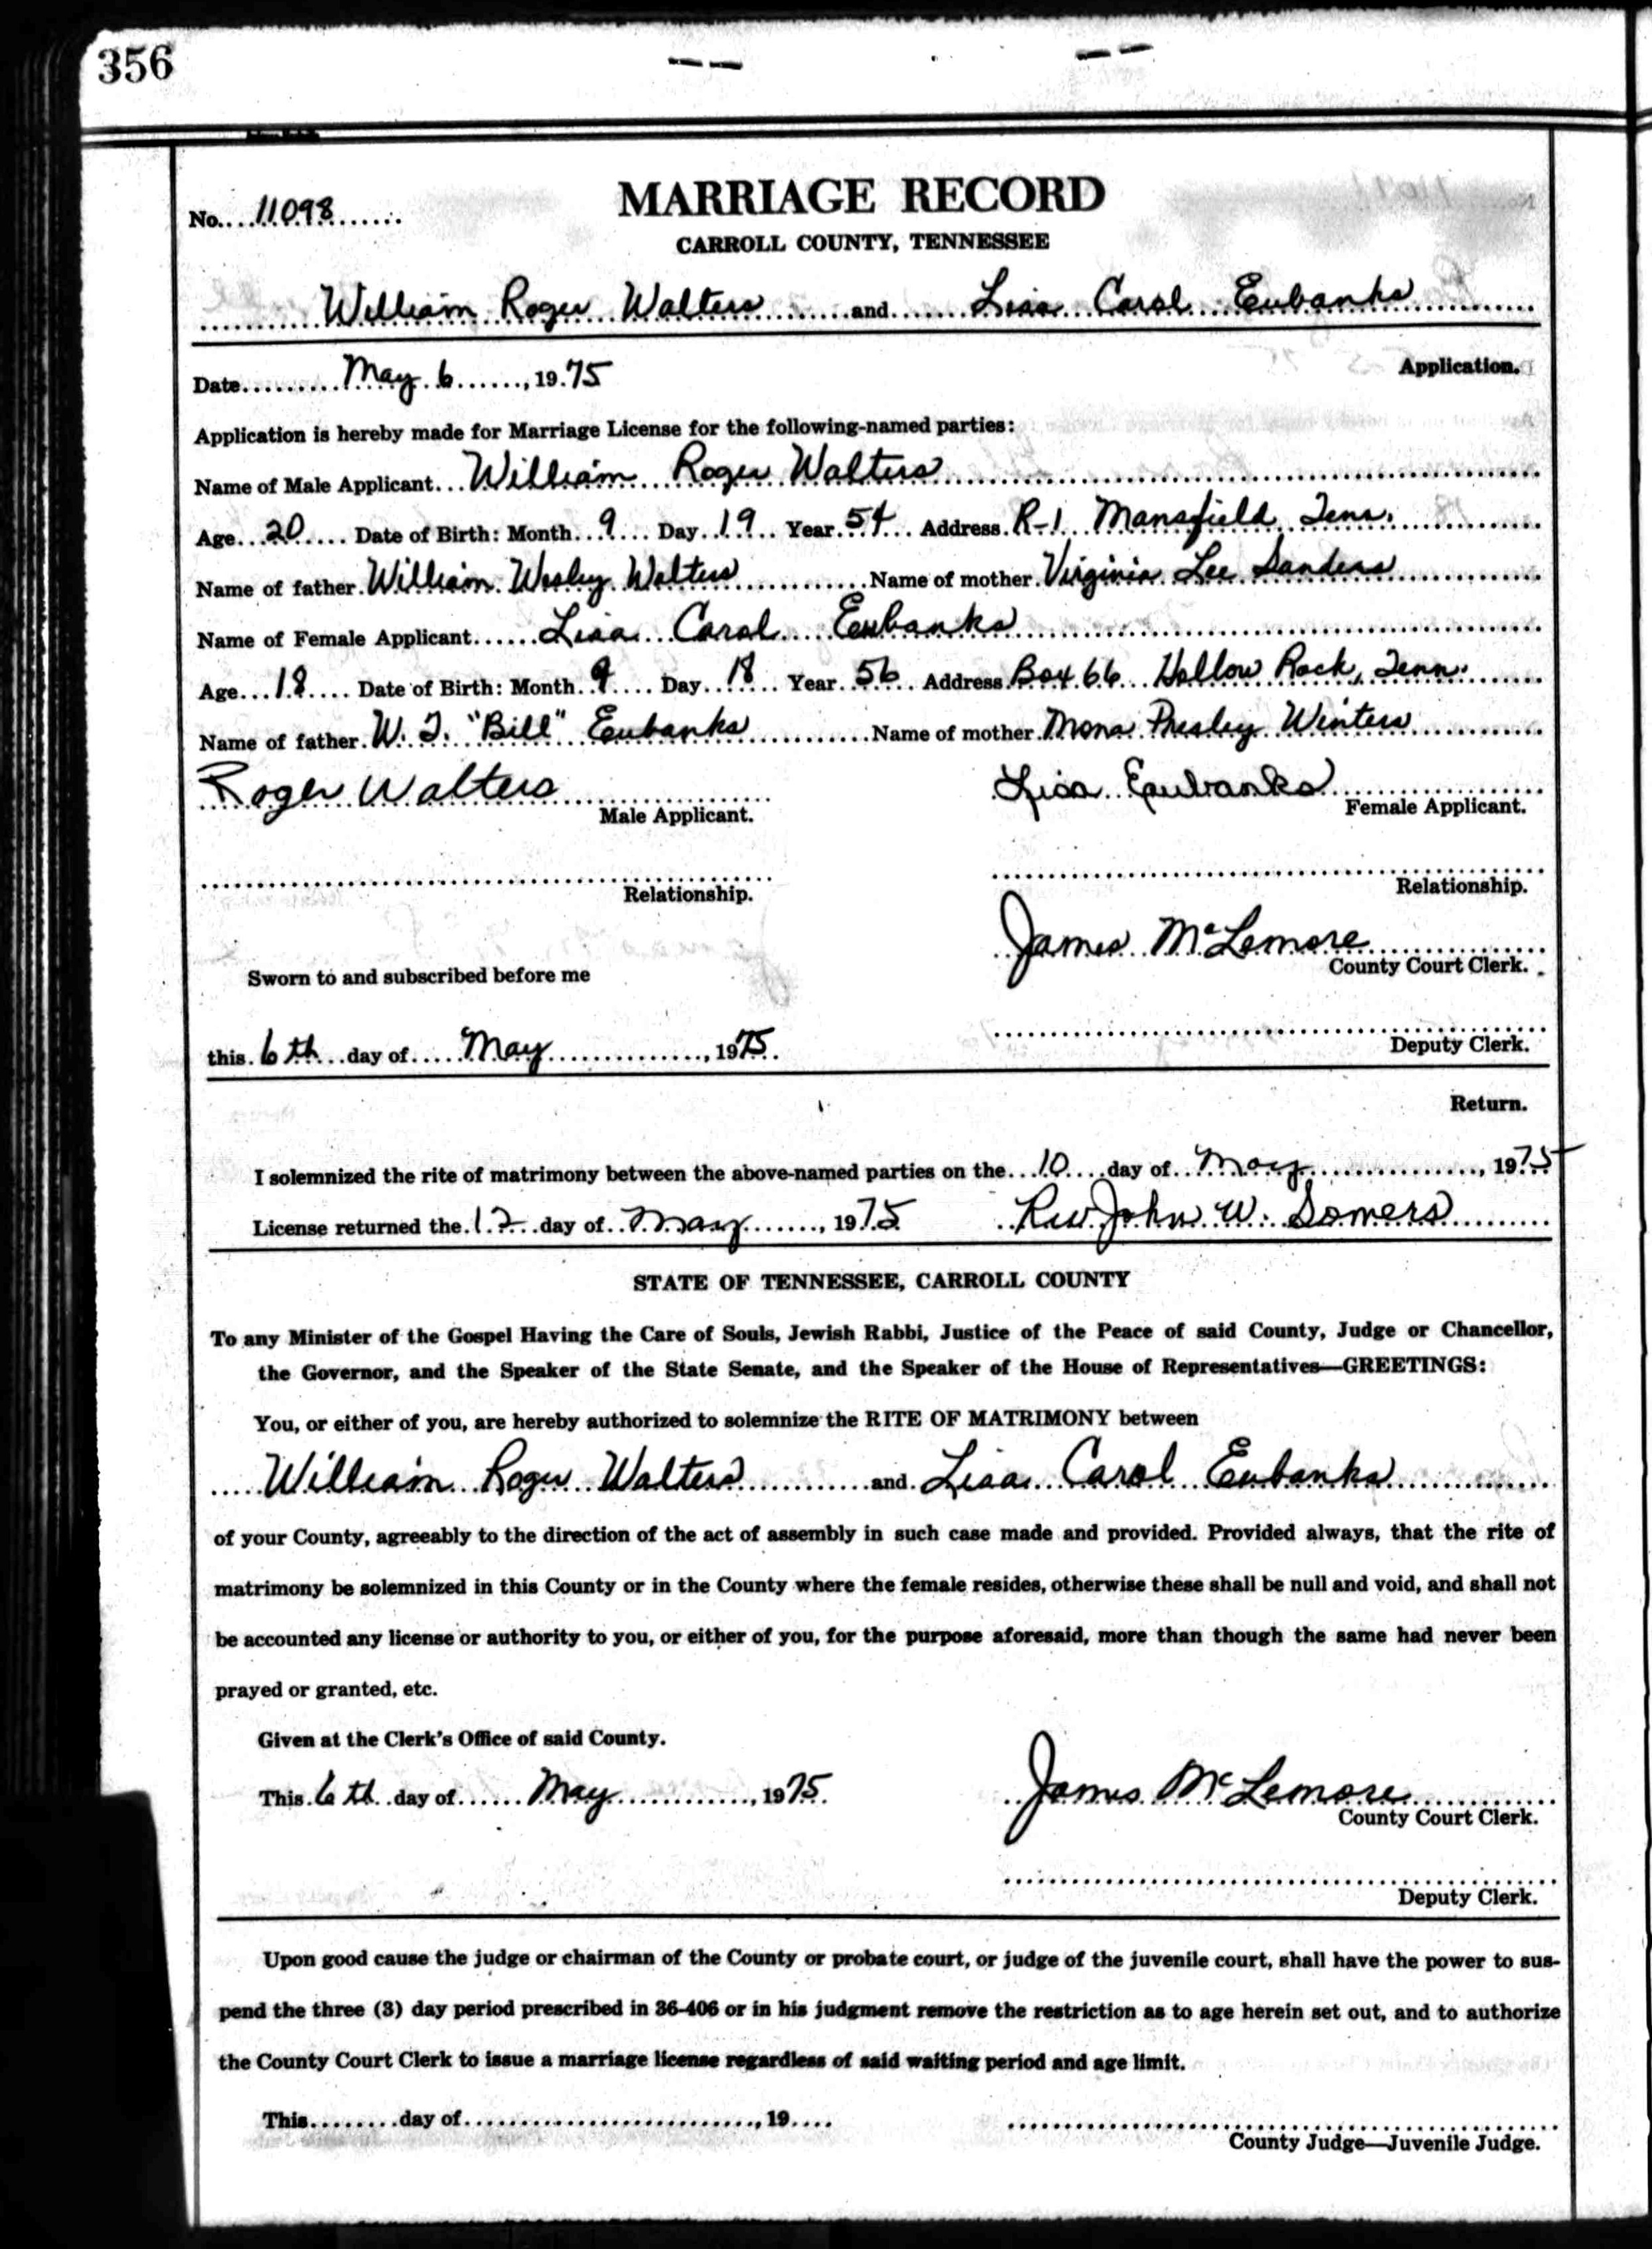 356
MARRIAGE RECORD
No. 11098
CARROLL COUNTY, TENNESSEE
William Roger Walters and Lisa Carol Eubanks
Date May 6, 1975 Application.
Application is hereby made for Marriage License for the following-named parties:
Name of Male Applicant William Roger Walters
Age 20 Date of Birth: Month 9 Day 19 Year 54 Address R-1 Mansfield, Tenn.
Name of father William Wesley Walters Name of mother Virginia Lee Sanders
Name of Female Applicant Lisa Carol Eubanks
Age 18 Date of Birth: Month 9 Day 18 Year 56 Address Box 66 Hollow Rock, Tenn.
Name of father W. T. "Bill" Eubanks Name of mother Mona Presley Winters
Roger Walters Lisa Eubanks
Male Applicant. Female Applicant.
Relationship. Relationship.
James McLemore
Sworn to and subscribed before me County Court Clerk.
this 6th day of May, 1975. Deputy Clerk.
Return.
I solemnized the rite of matrimony between the above-named parties on the 10 day of May, 1975
License returned the 12 day of May, 1975 Rev John W. Somers
STATE OF TENNESSEE, CARROLL COUNTY
To any Minister of the Gospel Having the Care of Souls, Jewish Rabbi, Justice of the Peace of said County, Judge or Chancellor,
the Governor, and the Speaker of the State Senate, and the Speaker of the House of Representatives—GREETINGS:
You, or either of you, are hereby authorized to solemnize the RITE OF MATRIMONY between
William Roger Walters and Lisa Carol Eubanks
of your County, agreeably to the direction of the act of assembly in such case made and provided. Provided always, that the rite of
matrimony be solemnized in this County or in the County where the female resides, otherwise these shall be null and void, and shall not
be accounted any license or authority to you, or either of you, for the purpose aforesaid, more than though the same had never been
prayed or granted, etc.
Given at the Clerk's Office of said County.
This 6th day of May, 1975. James McLemore
County Court Clerk.
Deputy Clerk.
Upon good cause the judge or chairman of the County or probate court, or judge of the juvenile court, shall have the power to sus-
pend the three (3) day period prescribed in 36-406 or in his judgment remove the restriction as to age herein set out, and to authorize
the County Court Clerk to issue a marriage license regardless of said waiting period and age limit.
This day of , 19
County Judge—Juvenile Judge.